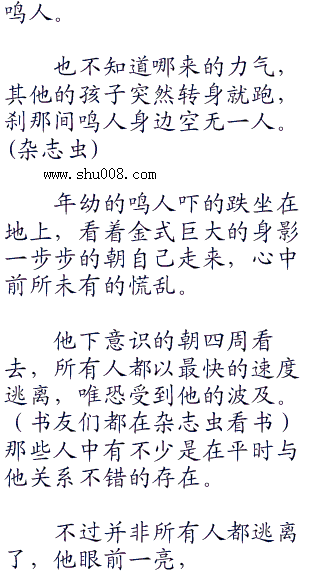 鸣人。
也不知道哪来的力气，
其他的孩子突然转身就跑，
刹那间鸣人身边空无一人。
(杂志虫)
www.shu008.com
年幼的鸣人吓的跌坐在
地上，看着金式巨大的身影
一步步的朝自己走来，心中
前所未有的慌乱。
他下意识的朝四周看
去，所有人都以最快的速度
逃离，唯恐受到他的波及。
（书友们都在杂志虫看书）
那些人中有不少是在平时与
他关系不错的存在。
不过并非所有人都逃离
了，他眼前一亮，